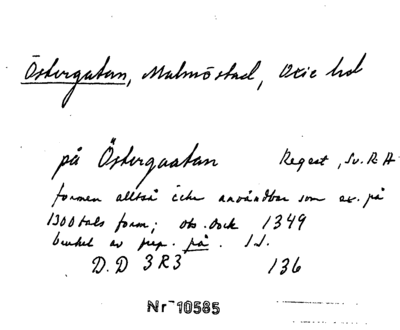 Östergatan, Malmö stad, Oxie hd
på Östergaatan Regest, Sv. R A
formen alltså icke användbar som ex. på
1300 tals form; obs. dock 1349
bruket av prep. på. I.L.
D.D 3R3 136
Nr 10585